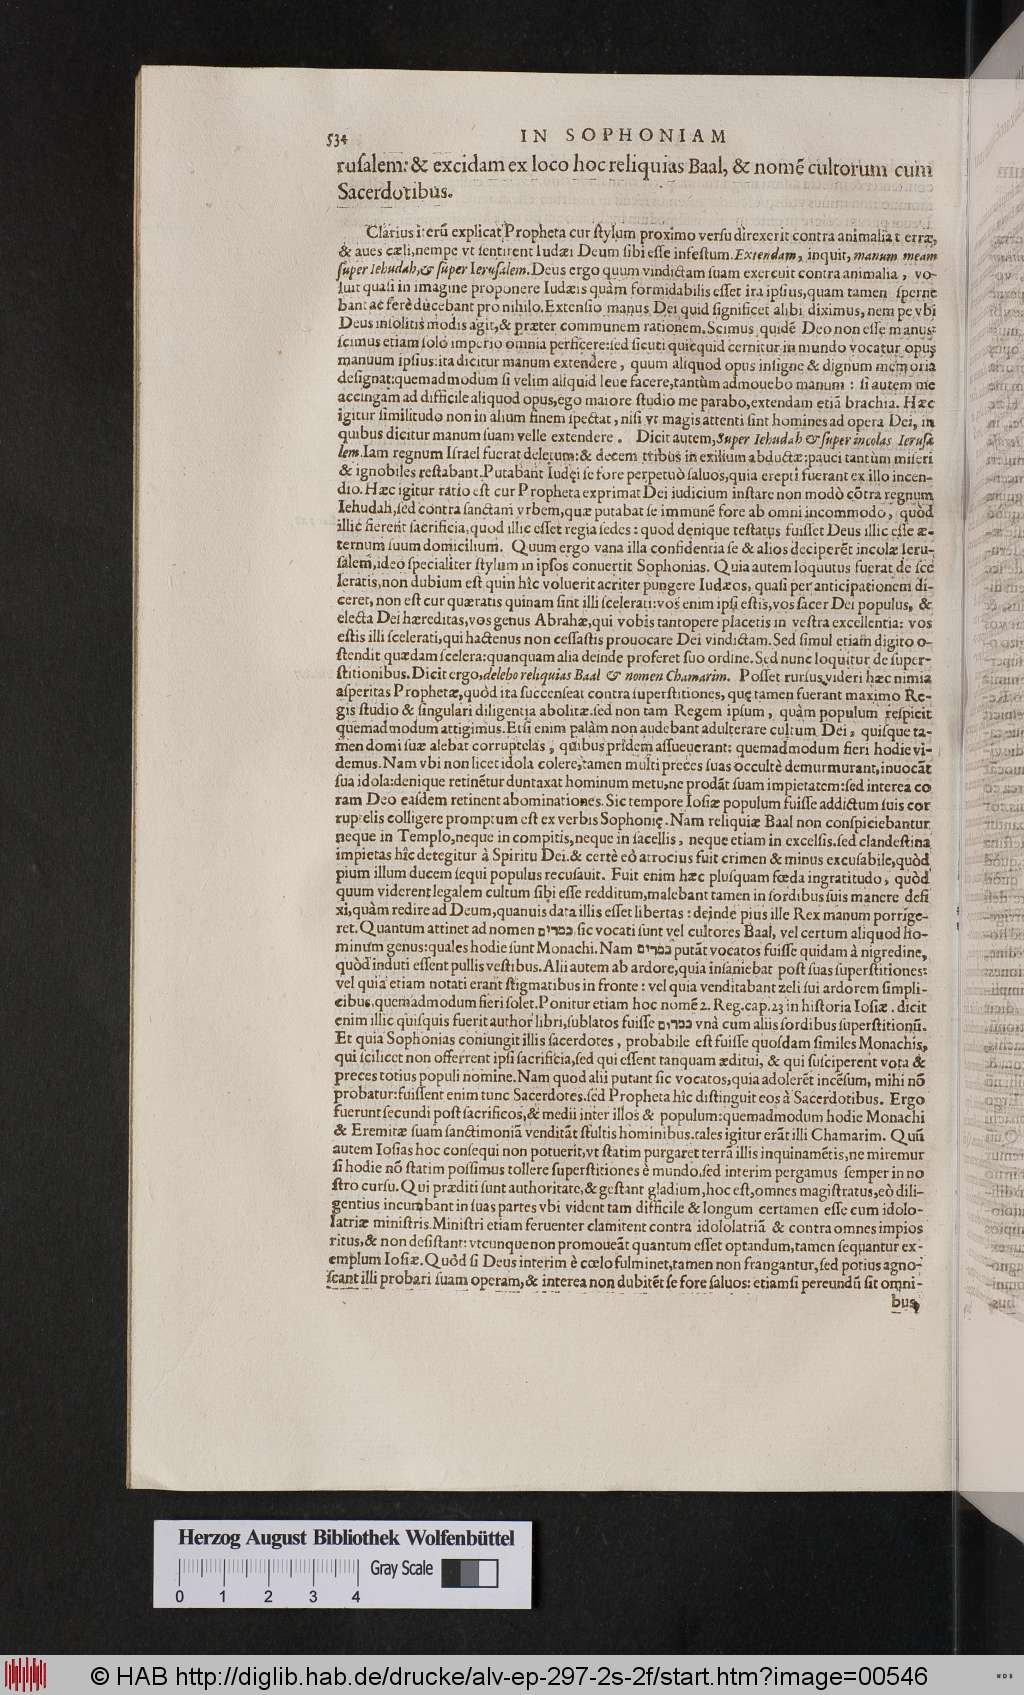 534 IN SOPHONIAM
ruſalem: & excidam ex loco hoc reliquias Baal, & nomē cultorum cum
Sacerdotibus.
Clarius iterū explicat Propheta cur ſtylum proximo verſu direxerit contra animalia terræ,
& aues cæli, nempe vt ſentirent Iudæi Deum ſibi eſſe infeſtum. Extendam, inquit, manum meam
ſuper Iehudah, & ſuper Ieruſalem. Deus ergo quum vindictam ſuam exercuit contra animalia, vo-
luit quaſi in imagine proponere Iudæis quàm formidabilis eſſet ira ipſius, quam tamen ſperne
bant ac ferè ducebant pro nihilo. Extenſio manus Dei quid ſignificet alibi diximus, nempe vbi
Deus inſolitis modis agit, & præter communem rationem. Scimus quidē Deo non eſſe manus:
ſcimus etiam ſolo imperio omnia perficere: ſed ſicuti quicquid cernitur in mundo vocatur opus
manuum ipſius: ita dicitur manum extendere, quum aliquod opus inſigne & dignum memoria
deſignat: quemadmodum ſi velim aliquid leue facere, tantùm admouebo manum: ſi autem me
accingam ad difficile aliquod opus, ego maiore ſtudio me parabo, extendam etiā brachia. Hæc
igitur ſimilitudo non in alium finem ſpectat, niſi vt magis attenti ſint homines ad opera Dei, in
quibus dicitur manum ſuam velle extendere. Dicit autem, Super Iehudah & ſuper incolas Ieruſa
lem. Iam regnum Iſrael fuerat deletum: & decem tribus in exilium abductæ: pauci tantùm miſeri
& ignobiles reſtabant. Putabant Iudęi ſe fore perpetuò ſaluos, quia erepti fuerant ex illo incen-
dio. Hæc igitur ratio eſt cur Propheta exprimat Dei iudicium inſtare non modò cōtra regnum
Iehudah, ſed contra ſanctam vrbem, quæ putabat ſe immunē fore ab omni incommodo, quòd
illic fierent ſacrificia, quod illic eſſet regia ſedes: quod denique teſtatus fuiſſet Deus illic eſſe æ-
ternum ſuum domicilium. Quum ergo vana illa confidentia ſe & alios deciperēt incolæ Ieru-
ſalem, ideo ſpecialiter ſtylum in ipſos conuertit Sophonias. Quia autem loquutus fuerat de ſce
leratis, non dubium eſt quin hîc voluerit acriter pungere Iudæos, quaſi per anticipationem di-
ceret, non eſt cur quæratis quinam ſint illi ſcelerati: vos enim ipſi eſtis, vos ſacer Dei populus, &
electa Dei hæreditas, vos genus Abrahæ, qui vobis tantopere placetis in veſtra excellentia: vos
eſtis illi ſcelerati, qui hactenus non ceſſaſtis prouocare Dei vindictam. Sed ſimul etiam digito o-
ſtendit quædam ſcelera: quanquam alia deinde proferet ſuo ordine. Sed nunc loquitur de ſuper-
ſtitionibus. Dicit ergo, delebo reliquias Baal & nomen Chamarim. Poſſet rurſus videri hæc nimia
aſperitas Prophetæ, quòd ita ſuccenſeat contra ſuperſtitiones, quę tamen fuerant maximo Re-
gis ſtudio & ſingulari diligentia abolitæ. ſed non tam Regem ipſum, quàm populum reſpicit
quemadmodum attigimus. Etſi enim palàm non audebant adulterare cultum Dei, quiſque ta-
men domi ſuæ alebat corruptelas, quibus pridem aſſueuerant: quemadmodum fieri hodie vi-
demus. Nam vbi non licet idola colere, tamen multi preces ſuas occultè demurmurant, inuocāt
ſua idola: denique retinētur duntaxat hominum metu, ne prodāt ſuam impietatem: ſed interea co
ram Deo eaſdem retinent abominationes. Sic tempore Ioſiæ populum fuiſſe addictum ſuis cor
ruptelis colligere promptum eſt ex verbis Sophonię. Nam reliquiæ Baal non conſpiciebantur
neque in Templo, neque in compitis, neque in ſacellis, neque etiam in excelſis. ſed clandeſtina
impietas hîc detegitur à Spiritu Dei. & certè eò atrocius fuit crimen & minus excuſabile, quòd
pium illum ducem ſequi populus recuſauit. Fuit enim hæc pluſquam fœda ingratitudo, quòd
quum viderent legalem cultum ſibi eſſe redditum, malebant tamen in ſordibus ſuis manere defi
xi, quàm redire ad Deum, quanuis data illis eſſet libertas: deinde pius ille Rex manum porrige-
ret. Quantum attinet ad nomen כמרים, ſic vocati ſunt vel cultores Baal, vel certum aliquod ho-
minum genus: quales hodie ſunt Monachi. Nam כמרים putāt vocatos fuiſſe quidam à nigredine,
quòd induti eſſent pullis veſtibus. Alii autem ab ardore, quia inſaniebat poſt ſuas ſuperſtitiones:
vel quia etiam notati erant ſtigmatibus in fronte: vel quia venditabant zeli ſui ardorem ſimpli-
cibus, quemadmodum fieri ſolet. Ponitur etiam hoc nomē 2. Reg. cap. 23 in hiſtoria Ioſiæ. dicit
enim illic quiſquis fuerit author libri, ſublatos fuiſſe כמרים vnà cum aliis ſordibus ſuperſtitionū.
Et quia Sophonias coniungit illis ſacerdotes, probabile eſt fuiſſe quoſdam ſimiles Monachis,
qui ſcilicet non offerrent ipſi ſacrificia, ſed qui eſſent tanquam æditui, & qui ſuſciperent vota &
preces totius populi nomine. Nam quod alii putant ſic vocatos, quia adolerēt incēſum, mihi nō
probatur: fuiſſent enim tunc Sacerdotes. ſed Propheta hîc diſtinguit eos à Sacerdotibus. Ergo
fuerunt ſecundi poſt ſacrificos, & medii inter illos & populum: quemadmodum hodie Monachi
& Eremitæ ſuam ſanctimoniā venditāt ſtultis hominibus. tales igitur erāt illi Chamarim. Quū
autem Ioſias hoc conſequi non potuerit, vt ſtatim purgaret terrā illis inquinamētis, ne miremur
ſi hodie nō ſtatim poſſimus tollere ſuperſtitiones è mundo. ſed interim pergamus ſemper in no
ſtro curſu. Qui præditi ſunt authoritate, & geſtant gladium, hoc eſt, omnes magiſtratus, eò dili-
gentius incumbant in ſuas partes vbi vident tam difficile & longum certamen eſſe cum idolo-
latriæ miniſtris. Miniſtri etiam feruenter clamitent contra idololatriā & contra omnes impios
ritus, & non deſiſtant: vtcunque non promoueāt quantum eſſet optandum, tamen ſequantur ex-
emplum Ioſiæ. Quòd ſi Deus interim è cœlo fulminet, tamen non frangantur, ſed potius agno-
ſcant illi probari ſuam operam, & interea non dubitēt ſe fore ſaluos: etiamſi pereundū ſit omni-
bus,
Herzog August Bibliothek Wolfenbüttel
Gray Scale
0 1 2 3 4
© HAB http://diglib.hab.de/drucke/alv-ep-297-2s-2f/start.htm?image=00546